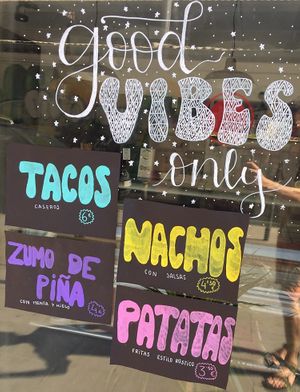 good
VIBES
only
TACOS
CASEROS
6€
NACHOS
CON SALSAS
4'50€
ZUMO DE
PIÑA
CON MENTA Y HIELO
4€
PATATAS
FRITAS ESTILO RÚSTICO
3'50€